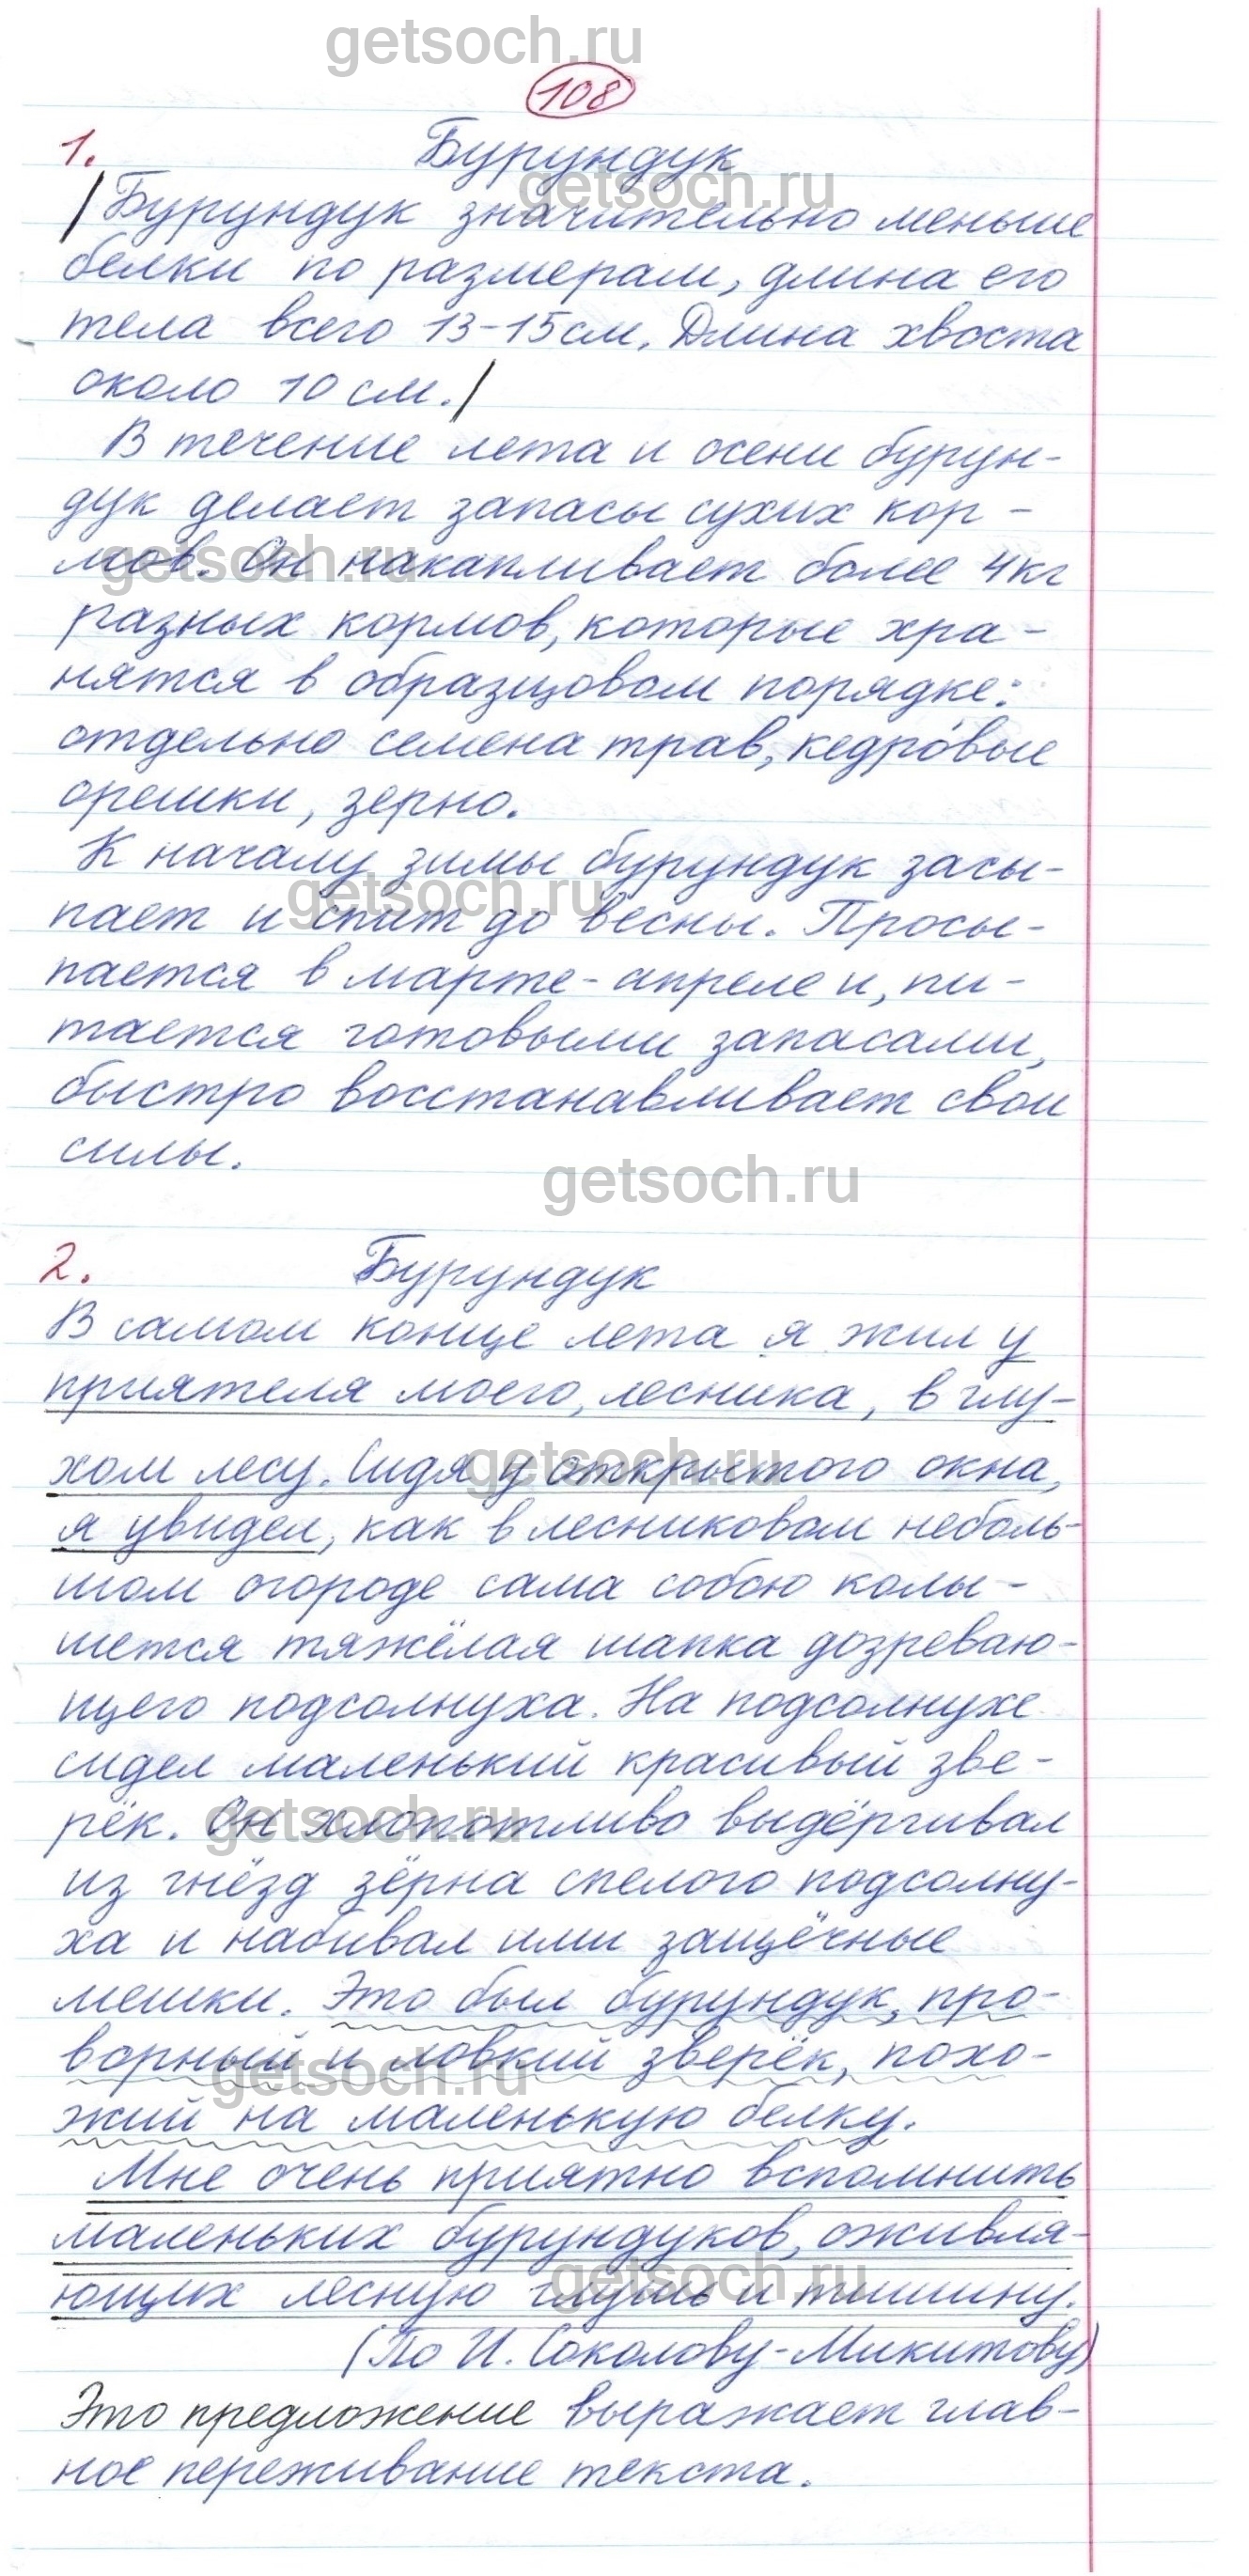 getsoch.ru
108
1. Бурундук
getsoch.ru
/Бурундук значительно меньше
белки по размерам, длина его
тела всего 13-15 см. Длина хвоста
около 10 см./
В течение лета и осени бурун-
дук делает запасы сухих кор-
getsoch.ru
мов. Он накапливает более 4 кг
разных кормов, которые хра-
нятся в образцовом порядке:
отдельно семена трав, кедровые
орешки, зерно.
К началу зимы бурундук засы-
getsoch.ru
пает и спит до весны. Просы-
пается в марте-апреле и, пи-
тается готовыми запасами,
быстро восстанавливает свои
силы.
getsoch.ru
2. Бурундук
В самом конце лета я жил у
приятеля моего, лесника, в глу-
хом лесу. Сидя у открытого окна,
getsoch.ru
я увидел, как в лесниковом неболь-
шом огороде сама собою колы-
шется тяжёлая шапка дозреваю-
щего подсолнуха. На подсолнухе
сидел маленький красивый зве-
рёк. Он хлопотливо выдёргивал
getsoch.ru
из гнёзд зёрна спелого подсолну-
ха и набивал ими защёчные
мешки. Это был бурундук, про-
ворный и ловкий зверёк, похо-
getsoch.ru
жий на маленькую белку.
Мне очень приятно вспомнить
маленьких бурундуков, оживля-
ющих лесную глушь и тишину.
getsoch.ru
(По И. Соколову-Микитову)
Это предложение выражает глав-
ное переживание текста.